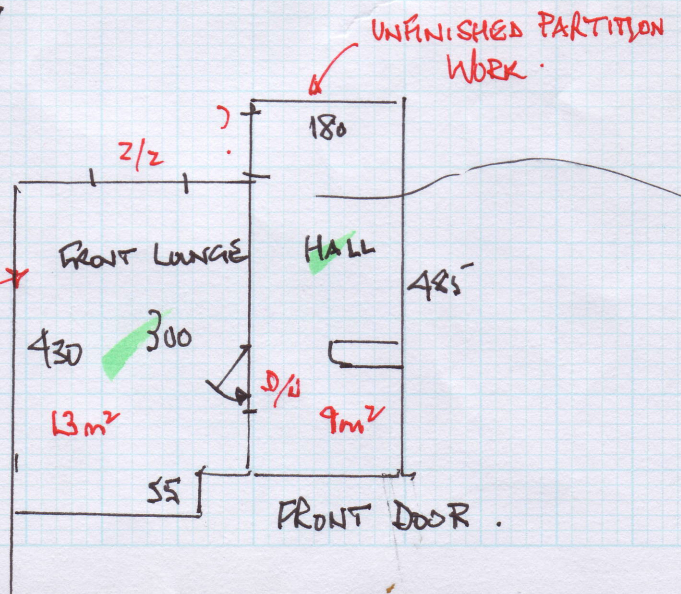 UNFINISHED PARTITION
WORK.
?
180
2/2
FRONT LOUNGE
HALL
485
430
300
13m²
9m²
55
FRONT DOOR.